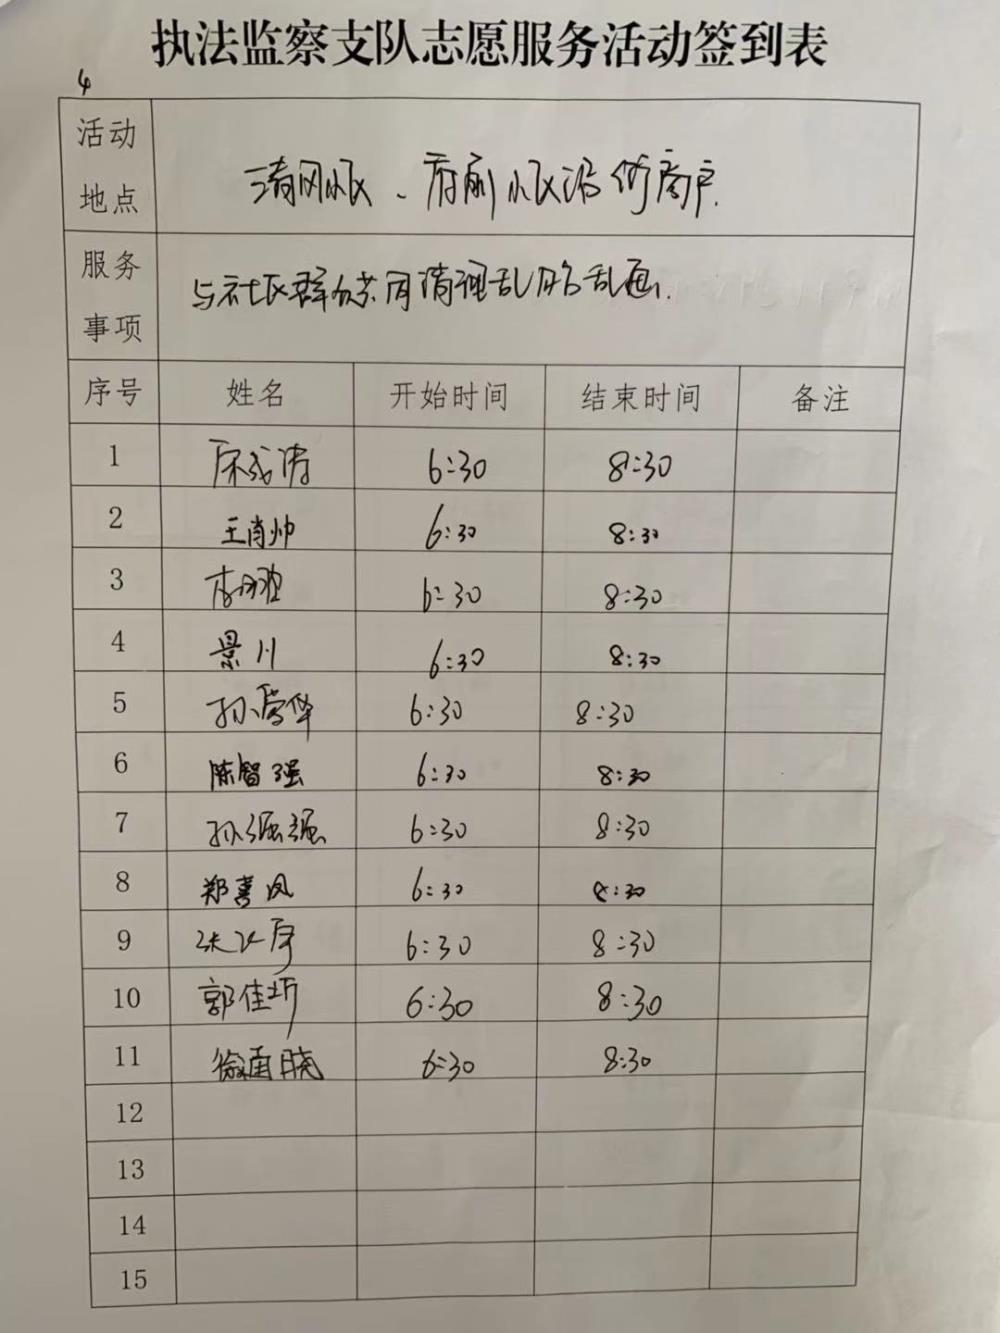 执法监察支队志愿服务活动签到表
4
活动地点 清风小区、府前小区沿街商户.
服务事项 与社区群众共同清理乱贴乱画.
序号 姓名 开始时间 结束时间 备注
1 6:30 8:30
2 王肖帅 6:30 8:30
3 6:30 8:30
4 景川 6:30 8:30
5 孙 华 6:30 8:30
6 陈智强 6:30 8:30
7 孙强强 6:30 8:30
8 郑喜凤 6:30 8:30
9 6:30 8:30
10 郭佳圻 6:30 8:30
11 徐 晓 6:30 8:30
12
13
14
15